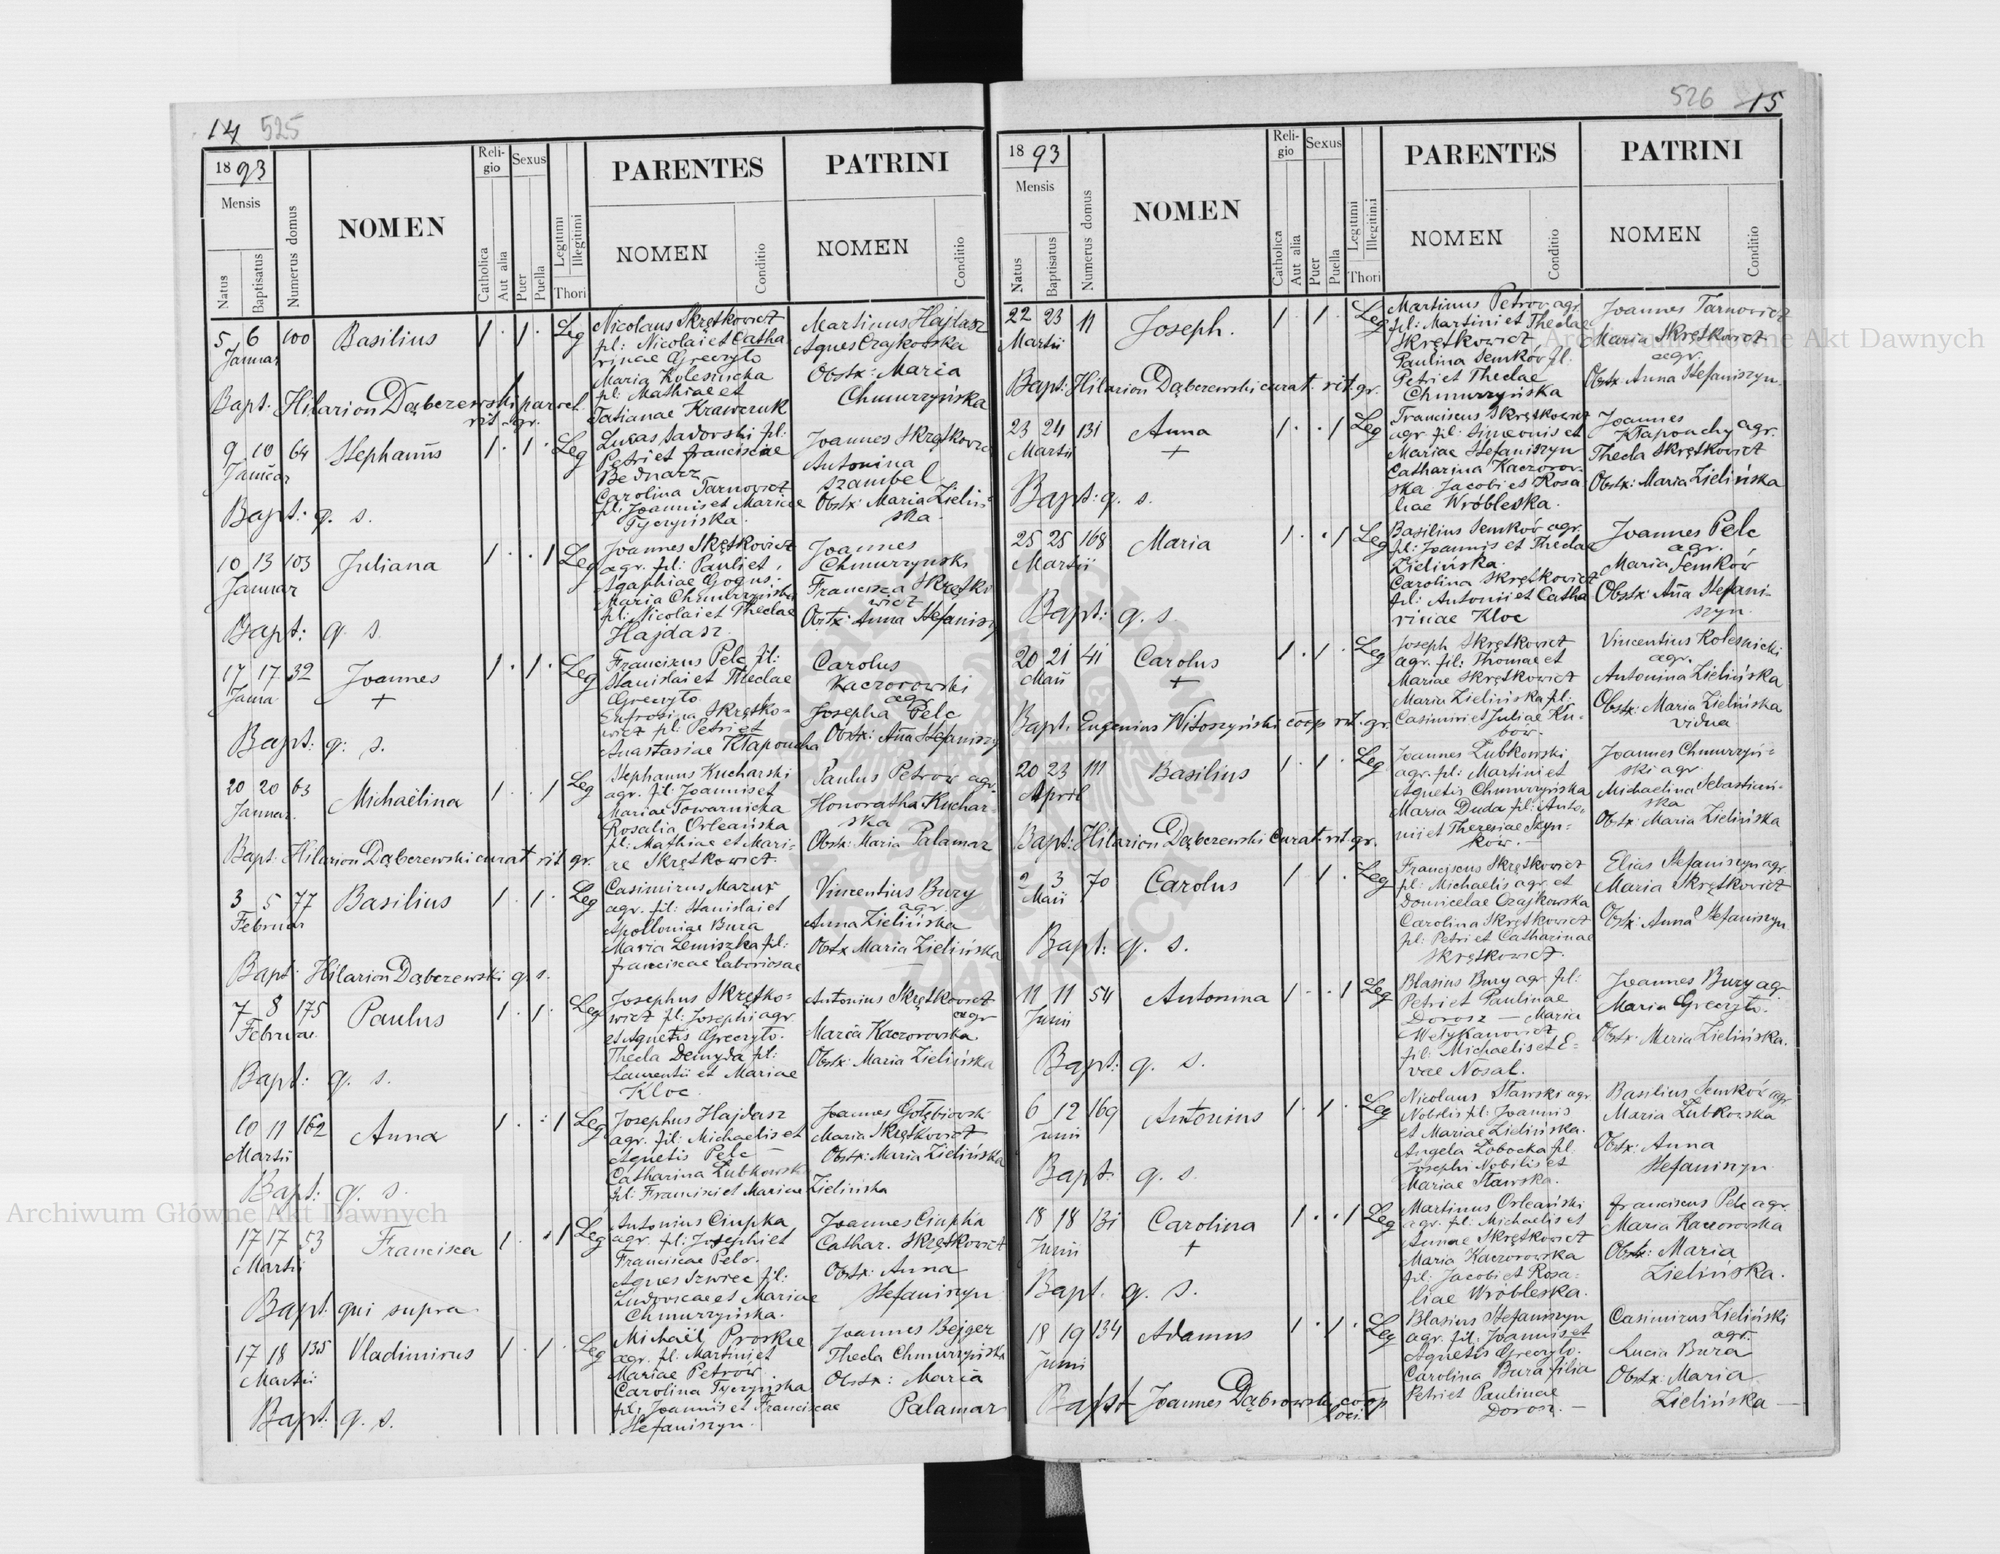 14 525
1893
Mensis
Natus
Baptisatus
Numerus domus
NOMEN
Religio
Catholica
Aut alia
Sexus
Puer
Puella
Legitimi
Illegitimi
Thori
PARENTES
NOMEN
Conditio
PATRINI
NOMEN
Conditio
5 6 100 Basilius 1 . 1 . Leg
Januar
Nicolaus Skrętkowicz
fil: Nicolai et Catha
rinae Greczyło
Maria Kolesnicka
fil: Mathiae et
Tatianae Krawczuk
Martinus Hajdasz
Agnes Czajkowska
Obstx: Maria
Chmurzyńska
Bapt: Hilarion Dąbczewski par
rit. gr.
9 10 64 Stephanus 1 . 1 . Leg
Januar
Lucas Sadorski fil:
Petri et Franciscae
Bednarz
Carolina Tarnowicz
fil: Joannis et Mariae
Tyczyńska.
Joannes Skrętkowicz
Antonina
Szambel
Obstx: Maria Zieliń
ska.
Bapt: q. s.
10 13 103 Juliana 1 . . 1 Leg
Januar
Joannes Skrętkowicz
agr. fil: Pauli et
Agaphiae Gogus.
Maria Chmurzyńska
fil: Nicolai et Theclae
Hajdasz.
Joannes
Chmurzynski
Francisca Skrętko
wicz
Obstx: Anna Stefaniszy
Bapt: q. s.
17 17 32 Joannes 1 . 1 . Leg
Janua +
Franciscus Pelc fil:
Stanislai et Theclae
Greczyło
Eufrosina Skrętko=
wicz fil: Petri et
Anastasiae Kłapoucha
Carolus
Kaczorowski
agr
Josepha Pelc
Obstx: Anna Stefaniszy
Bapt: q: s.
20 20 63 Michaëlina 1 . . 1 Leg
Januar.
Stephanus Kucharski
agr. fil: Joannis et
Mariae Towarnicka
Rosalia Orleańska
fil: Mathiae et Mari-
ae Skrętkowicz.
Paulus Petrow agr.
Honoratha Kuchar-
ska
Obstx: Maria Palamar
Bapt: Hilarion Dąbczewski curat rit gr.
3 5 77 Basilius 1 . 1 . Leg
Februar
Casimirus Mazur
agr. fil: Stanislai et
Apolloniae Bura
Maria Lemiszka fil:
Franciscae laboriosae
Vincentius Bury
agr
Anna Zielińska
Obstx Maria Zielińska
Bapt: Hilarion Dąbczewski q. s.
7 8 175 Paulus 1 . 1 . Leg
Februar.
Josephus Skrętko=
wicz fil: Josephi agr
et Agnetis Greczyło.
Thecla Demyda fil:
Laurentii et Mariae
Kloc
Antonius Skrętkowicz
agr
Maria Kaczorowska
Obstx: Maria Zielińska
Bapt: q. s.
10 11 162 Anna 1 . . 1 Leg
Martii
Josephus Hajdasz
agr. fil: Michaelis et
Agnetis Pelc
Catharina Łubkowsk
fil: Francisci et Mariae Zielińska
Joannes Gołębiowski
Maria Skrętkowicz
Obstx: Maria Zielińska
Bapt: q. s.
17 17 53 Francisca 1 . . 1 Leg
Martii
Antonius Ciupka
agr. fil: Josephi et
Franciscae Pelc.
Agnes Szwec fil:
Ludovicae et Mariae
Chmurzyńska.
Joannes Ciupka
Cathar. Skrętkowicz
Obstx: Anna
Stefaniszyn
Bapt. qui supra
17 18 135 Vladimirus 1 . 1 . Leg
Martii
Michaël Proskie
agr. fil. Martini et
Mariae Petrów.
Carolina Tyczyńska
fil: Joannis et Franciscae
Stefaniszyn.
Joannes Bejger
Thecla Chmurzyńska
Obstx: Maria
Palamar
Bapt. q. s.
526 15
1893
Mensis
Natus
Baptisatus
Numerus domus
NOMEN
Religio
Catholica
Aut alia
Sexus
Puer
Puella
Legitimi
Illegitimi
Thori
PARENTES
NOMEN
Conditio
PATRINI
NOMEN
Conditio
22 23 11 Joseph. 1 . 1 . Leg
Martii
Martinus Petrow agr.
fil: Martini et Theclae
Skrętkowicz
Paulina Semków fil.
Petri et Theclae
Chmurzyńska
Joannes Tarnowicz
Maria Skrętkowicz
agr.
Obstx Anna Stefaniszyn.
Bapt: Hilarion Dąbczewski curat. rit. gr.
23 24 131 Anna 1 . . 1 Leg
Martii +
Franciscus Skrętkowicz
agr fil: Simeonis et
Mariae Stefaniszyn
Catharina Kaczorow-
ska Jacobi et Rosa
liae Wróbleska.
Joannes
Kłapouchy agr.
Thecla Skrętkowicz
Obstx: Maria Zielińska
Bapt: q. s.
25 25 168 Maria 1 . . 1 Leg
Martii
Basilius Semków agr.
fil: Joannis et Theclae
Zielińska.
Carolina Skrętkowicz
fil: Antonii et Catha
rinae Kloc
Joannes Pelc
agr.
Maria Semków
Obstx: Anna Stefani-
szyn.
Bapt: q. s.
20 21 41 Carolus 1 . 1 . Leg
Maii +
Joseph Skrętkowicz
agr. fil: Thomae et
Mariae Skrętkowicz
Maria Zielińska fil:
Casimiri et Juliae Ku-
bow.
Vincentius Kolesnicki
agr.
Antonina Zielińska
Obstx: Maria Zielińska
vidua
Bapt. Eugenius Witoszyński coop rit. gr.
20 23 111 Basilius 1 . 1 . Leg
April
Joannes Łubkowski
agr. fil: Martini et
Agnetis Chmurzyńska
Maria Duda fil: Anto-
nii et Theresiae Skyn-
ków.
Joannes Chmurzyń=
ski agr
Michaelina Sebastiań-
ska
Obstx: Maria Zielińska
Bapt: Hilarion Dąbczewski Curat rit. gr.
2 3 70 Carolus 1 . 1 . Leg
Maii
Franciscus Skrętkowicz
fil: Michaelis agr. et
Domicelae Czajkowska
Carolina Skrętkowicz
fil: Petri et Catharinae
Skrętkowicz.
Elias Stefaniszyn agr
Maria Skrętkowicz
Obstx: Anna Stefaniszyn
Bapt: q. s.
11 11 54 Antonina 1 . . 1 Leg
Junii
Blasius Bury agr fil:
Petri et Paulinae
Dorosz — Maria
Wełykanowicz
fil: Michaelis et E-
vae Nosal.
Joannes Bury agr
Maria Greczyło.
Obstx: Maria Zielińska.
Bapt: q. s.
6 12 169 Antonius 1 . 1 . Leg
Junii
Nicolaus Stawski agr
Nobilis fil: Joannis
et Mariae Zielińska.
Angela Łobocka fil.
Josephi Nobilis et
Mariae Stawska.
Basilius Semków agr
Maria Łubkowska
Obstx: Anna
Stefaniszyn
Bapt: q. s.
18 18 131 Carolina 1 . . 1 Leg
Junii +
Martinus Orleański
agr. fil: Michaelis et
Annae Skrętkowicz
Maria Kaczorowska
fil: Jacobi et Rosa-
liae Wróbleska.
Franciscus Pelc agr.
Maria Kaczorowska
Obstx: Maria
Zielińska.
Bapt. q. s.
18 19 134 Adamus 1 . 1 . Leg
Junii
Blasius Stefaniszyn
agr. fil: Joannis et
Agnetis Greczyło.
Carolina Bura filia
Petri et Paulinae
Dorosz. —
Casimirus Zieliński
agr.
Lucia Bura
Obstx: Maria
Zielińska —
Bapt Joannes Dąbrowski coop
loci
Archiwum Główne Akt Dawnych
Archiwum Główne Akt Dawnych